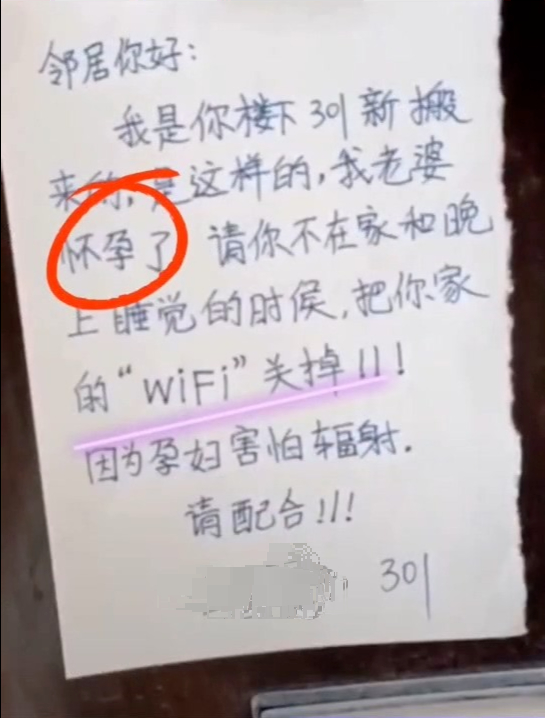 邻居你好:
我是你楼下301新搬
来的,是这样的,我老婆
怀孕了 请你不在家和晚
上睡觉的时侯,把你家
的“WiFi”关掉!!!
因为孕妇害怕辐射.
请配合!!!
301